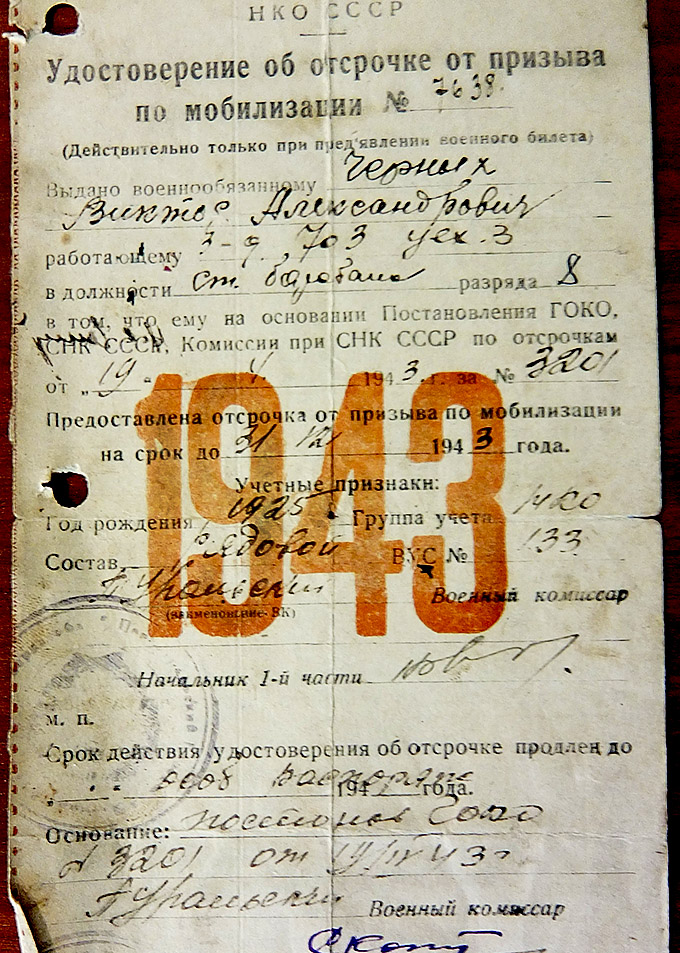 НКО СССР
Удостоверение об отсрочке от призыва
по мобилизации № 7638
(Действительно только при пред'явлении военного билета)
Выдано военнообязанному Черных
Виктор Александрович
работающему з-д 703 цех 3
в должности ст. разряда 8
в том, что ему на основании Постановления ГОКО,
СНК СССР, Комиссии при СНК СССР по отсрочкам
от „19" 1943 г. за № 3201
1943
Предоставлена отсрочка от призыва по мобилизации
на срок до 31 12 1943 года.
Учетные признаки:
Год рождения 1925 Группа учета
Состав рядовой ВУС № 133
П Уральский Военный комиссар
(наименование ВК)
Начальник 1-й части
м. п.
Срок действия удостоверения об отсрочке продлен до
особ 194 года.
Основание: Гоко
3201 от 43
П Уральский Военный комиссар